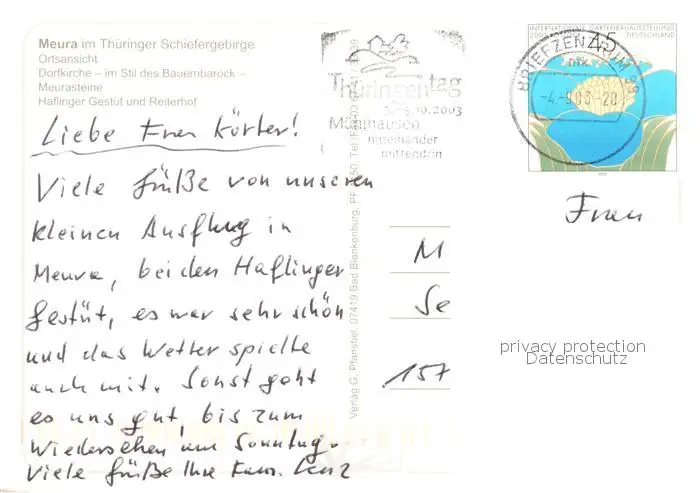 Meura im Thüringer Schiefergebirge
Ortsansicht
Dorfkirche – im Stil des Bauernbarock –
Meurasteine
Haflinger Gestüt und Reiterhof
Liebe Frau Körber!
Viele Grüße von unseren
kleinen Ausflug in
Meura, bei den Haflinger
Gestüt, es war sehr schön
und das Wetter spielte
auch mit. Sonst geht
es uns gut, bis zum
Wiedersehen am Sonntag.
Viele Grüße Ihre Fam. Lenz
Verlag G. Pfanstiel, 07419 Bad Blankenburg, PF
Thüringentag
3.-5.10.2003
Mühlhausen
miteinander
mittendrin
INTERNATIONALE GARTENBAUAUSSTELLUNG
2003
DEUTSCHLAND
45
BRIEFZENTRUM
-4.-9.03-20
Frau
M
Se
157
privacy protection
Datenschutz